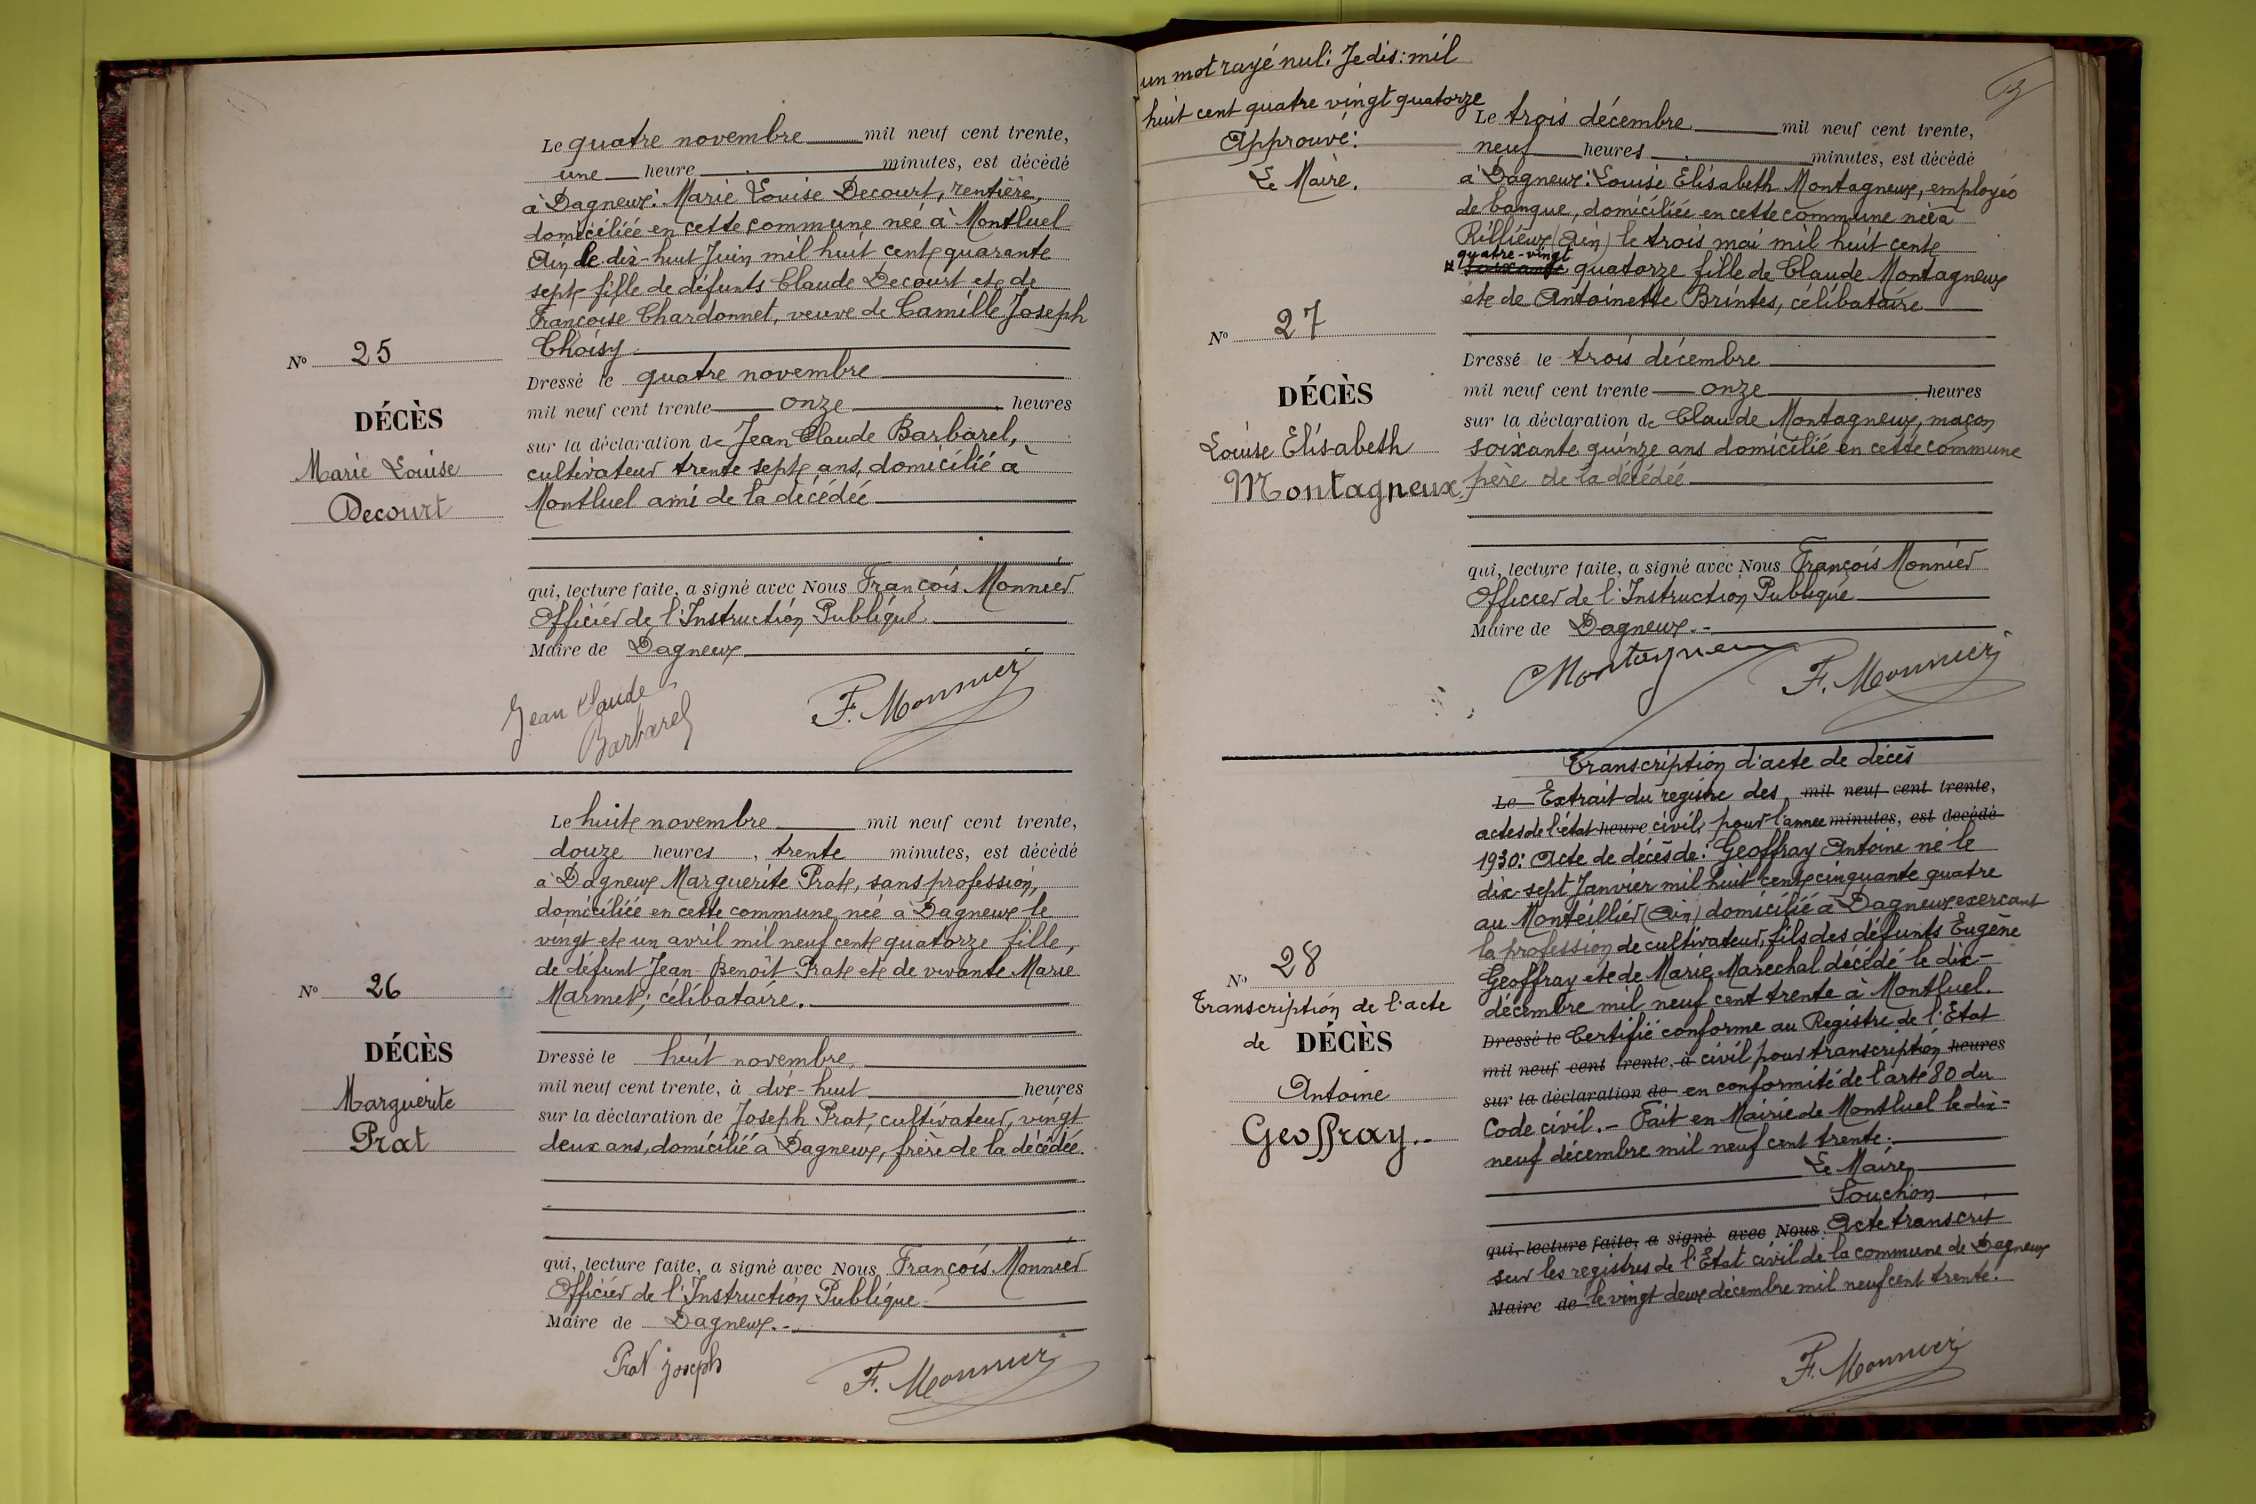 Le quatre novembre mil neuf cent trente,
une heure minutes, est décédé
à Dagneux: Marie Louise Decourt, rentière,
domiciliée en cette commune neé à Montluel
Ain le dix-huit Juin mil huit cent quarante
sept fille de défunts Claude Decourt et de
Françoise Chardonnet, veuve de Camille Joseph
Choisy
No 25
DÉCÈS
Marie Louise
Decourt
Dressé le quatre novembre
mil neuf cent trente onze heures
sur la déclaration de Jean Claude Barbarel,
cultivateur trente sept ans, domicilié à
Montluel ami de la décédée
qui, lecture faite, a signé avec Nous François Monnier
Officier de l'Instruction Publique
Maire de Dagneux
Jean Claude
Barbarel
F. Monnier
Le huit novembre mil neuf cent trente,
douze heures, trente minutes, est décédé
à Dagneux Marguerite Prat, sans profession,
domiciliée en cette commune neé à Dagneux le
vingt et un avril mil neuf cent quatorze fille,
de défunt Jean-Benoît Prat et de vivante Marie
Marmet; célibataire.
No 26
DÉCÈS
Marguerite
Prat
Dressé le huit novembre
mil neuf cent trente, à dix-huit heures
sur la déclaration de Joseph Prat, cultivateur, vingt
deux ans, domicilié à Dagneux, frère de la décédée.
qui, lecture faite, a signé avec Nous François Monnier
Officier de l'Instruction Publique
Maire de Dagneux.-
Prat Joseph
F. Monnier
un mot rayé nul: Je dis: mil
huit cent quatre vingt quatorze
Approuvé:
Le Maire.
Le trois décembre mil neuf cent trente,
neuf heures minutes, est décédé
à Dagneux: Louise Elisabeth Montagneux, employeé
de banque, domiciliée en cette commune née à
Rillieux (Ain) le trois mai mil huit cent
quatre-vingt
soixante quatorze fille de Claude Montagneux
et de Antoinette Brintes, célibataire
No 27
DÉCÈS
Louise Elisabeth
Montagneux
Dressé le trois décembre
mil neuf cent trente onze heures
sur la déclaration de Claude Montagneux, maçon
soixante quinze ans domicilié en cette commune
père de la décédée
qui, lecture faite, a signé avec Nous François Monnier
Officier de l'Instruction Publique
Maire de Dagneux.-
CMontagneux
F. Monnier
Transcription d'acte de décès
Le Extrait du registre des mil neuf cent trente,
actes de l'état heure civil, pour l'année minutes, est décédé
1930: Acte de décès de: Geoffray Antoine né le
dix-sept Janvier mil huit cent cinquante quatre
au Montéillier (Ain) domicilié à Dagneux exerçant
la profession de cultivateur, fils des défunts Eugène
Geoffray et de Marie Marechal décédé le dix-
décembre mil neuf cent trente à Montluel.
No 28
Transcription de l'acte
de DÉCÈS
Antoine
Geoffray.-
Dressé le Certifié conforme au Registre de l'Etat
mil neuf cent trente, à civil pour transcription heures
sur la déclaration de en conformité de l'art 80 du
Code civil.- Fait en Mairie de Montluel le dix-
neuf décembre mil neuf cent trente.
Le Maire
Souchon
qui, lecture faite, a signé avec Nous Acte transcrit
sur les registres de l'Etat civil de la commune de Dagneux
Maire de le vingt deux décembre mil neuf cent trente.
F. Monnier